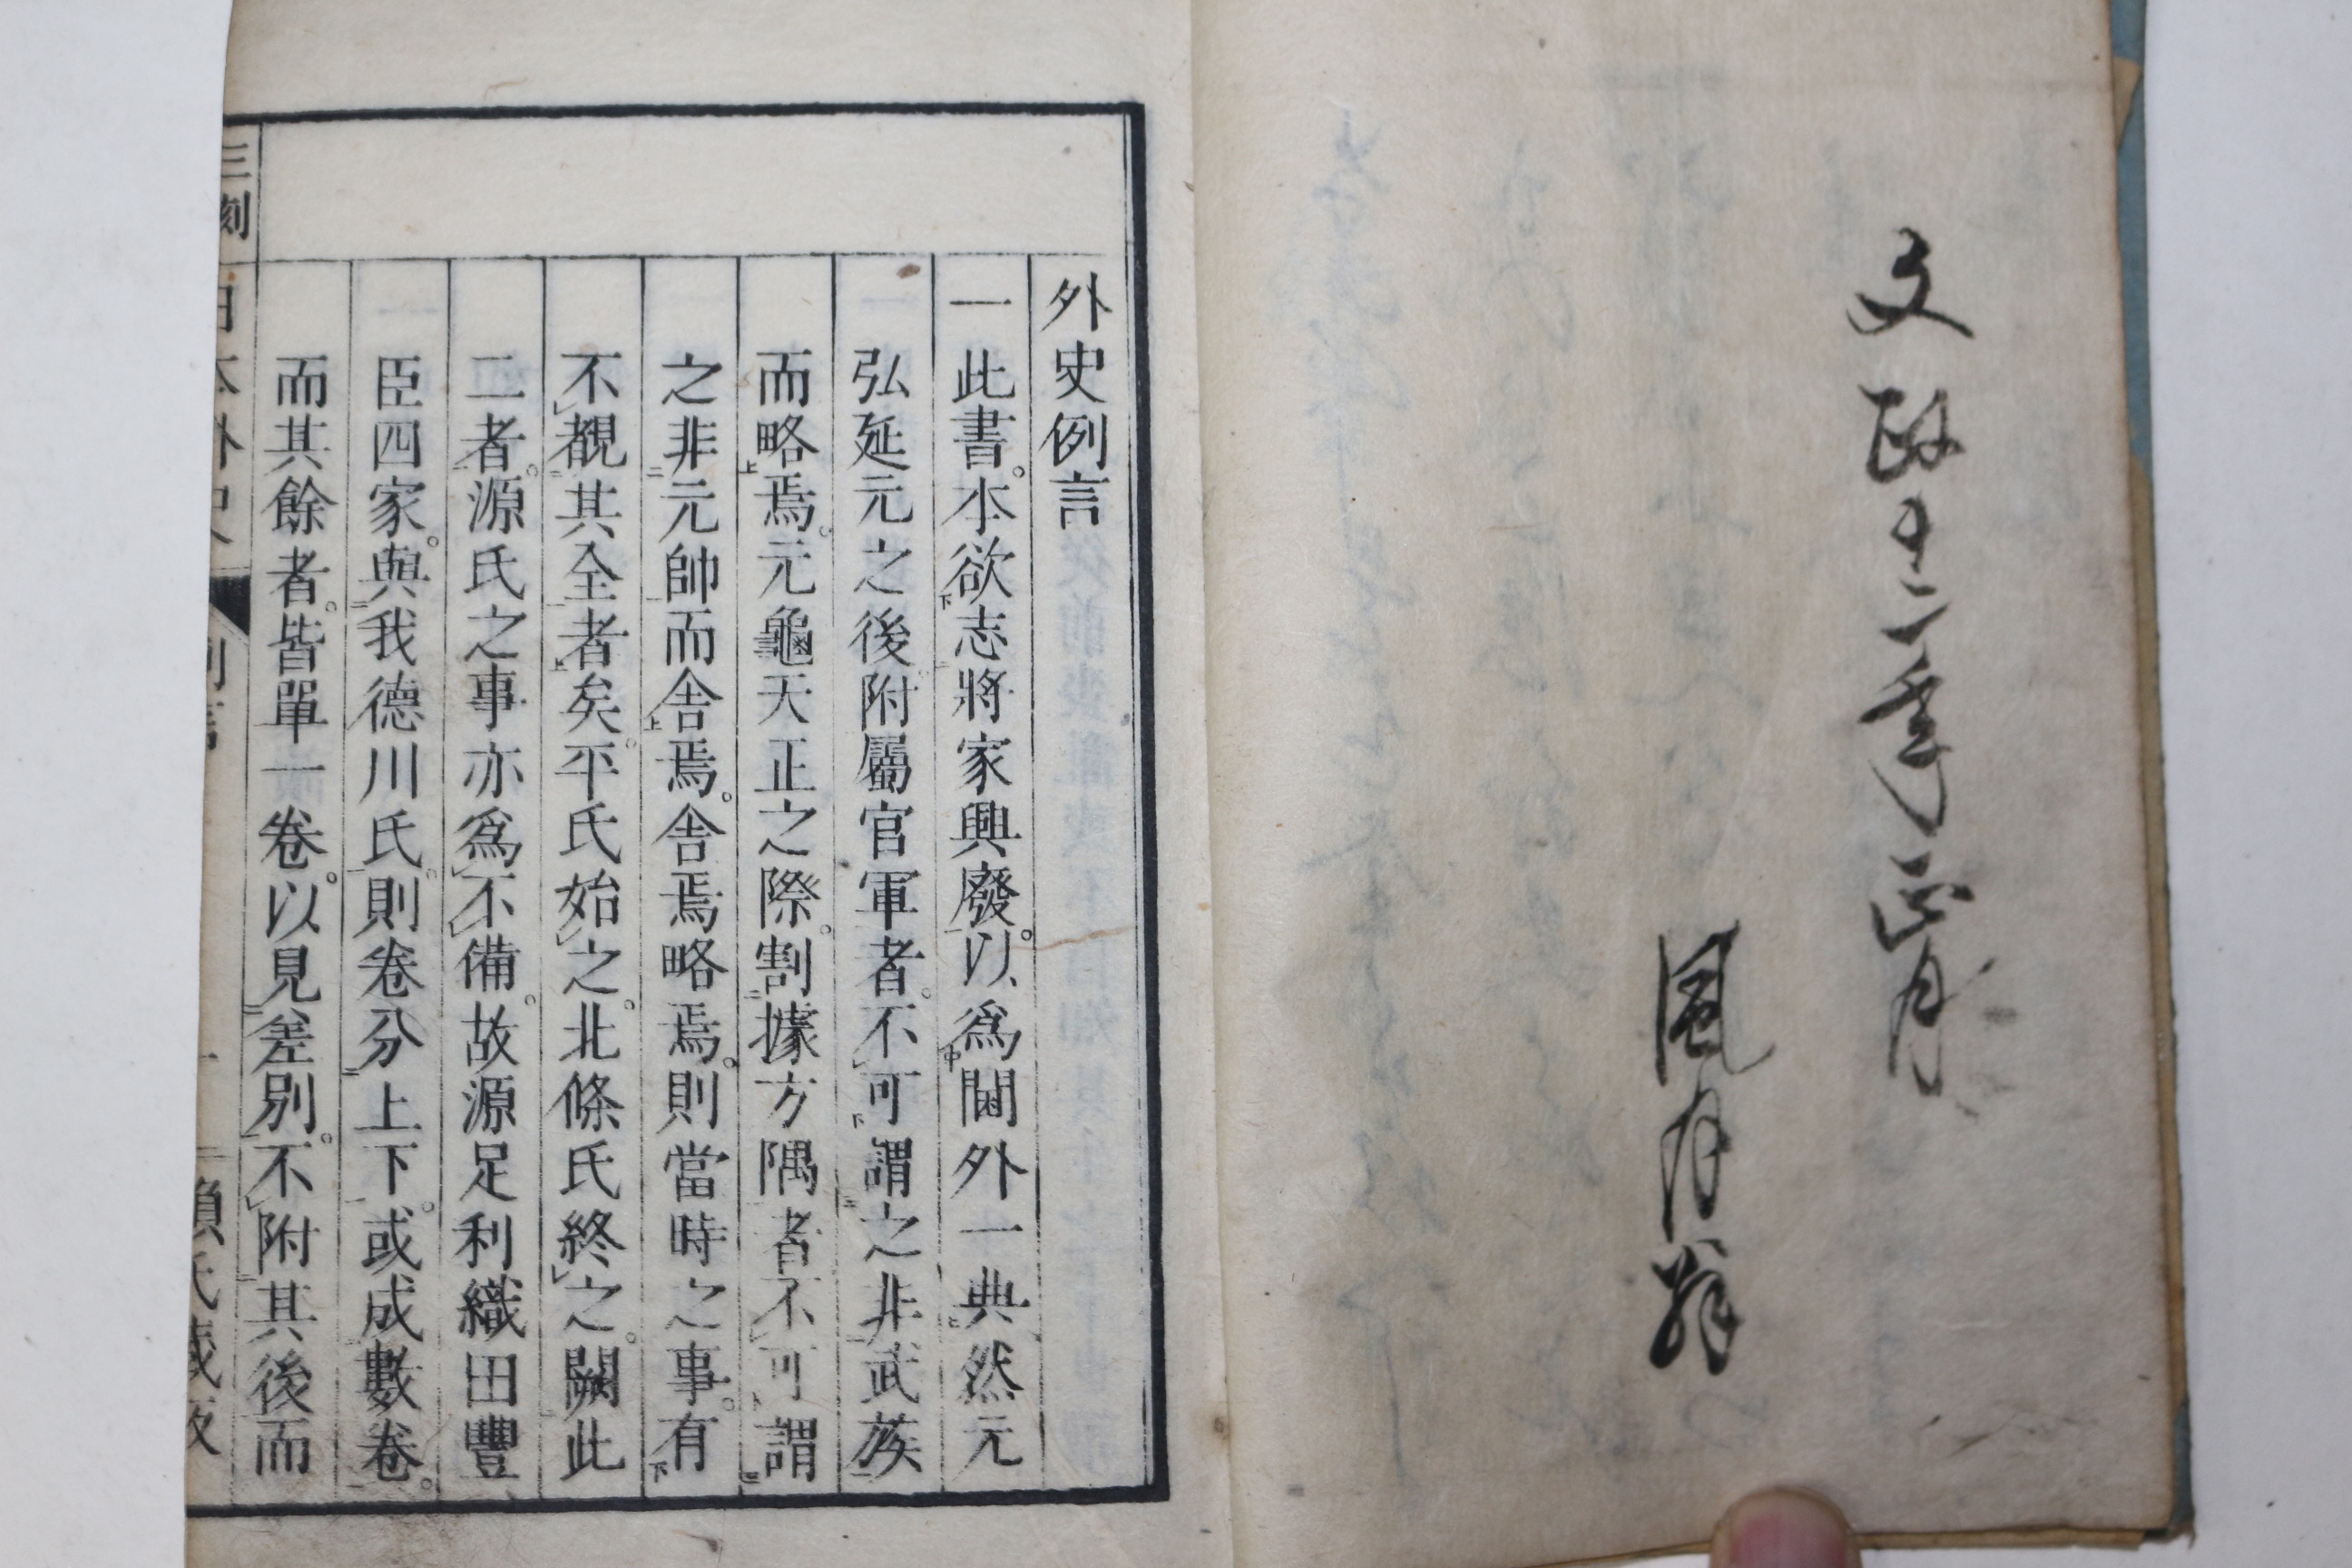 文政十二年正月
風月翁
外史例言
一此書。本欲志將家興廢。以爲閫外一典。然元
弘延元之後。附屬官軍者。不可謂之非武族
而略焉。元龜天正之際。割據方隅者不可謂
之非元帥而舍焉。舍焉略焉。則當時之事。有
不覩其全者矣。平氏始之。北條氏終之。闕此
二者。源氏之事亦爲不備。故源足利織田豐
臣四家。與我德川氏。則卷分上下。或成數卷。
而其餘者。皆單一卷。以見差別。不附其後而
三刻 日本外史 例言 一 賴氏藏板